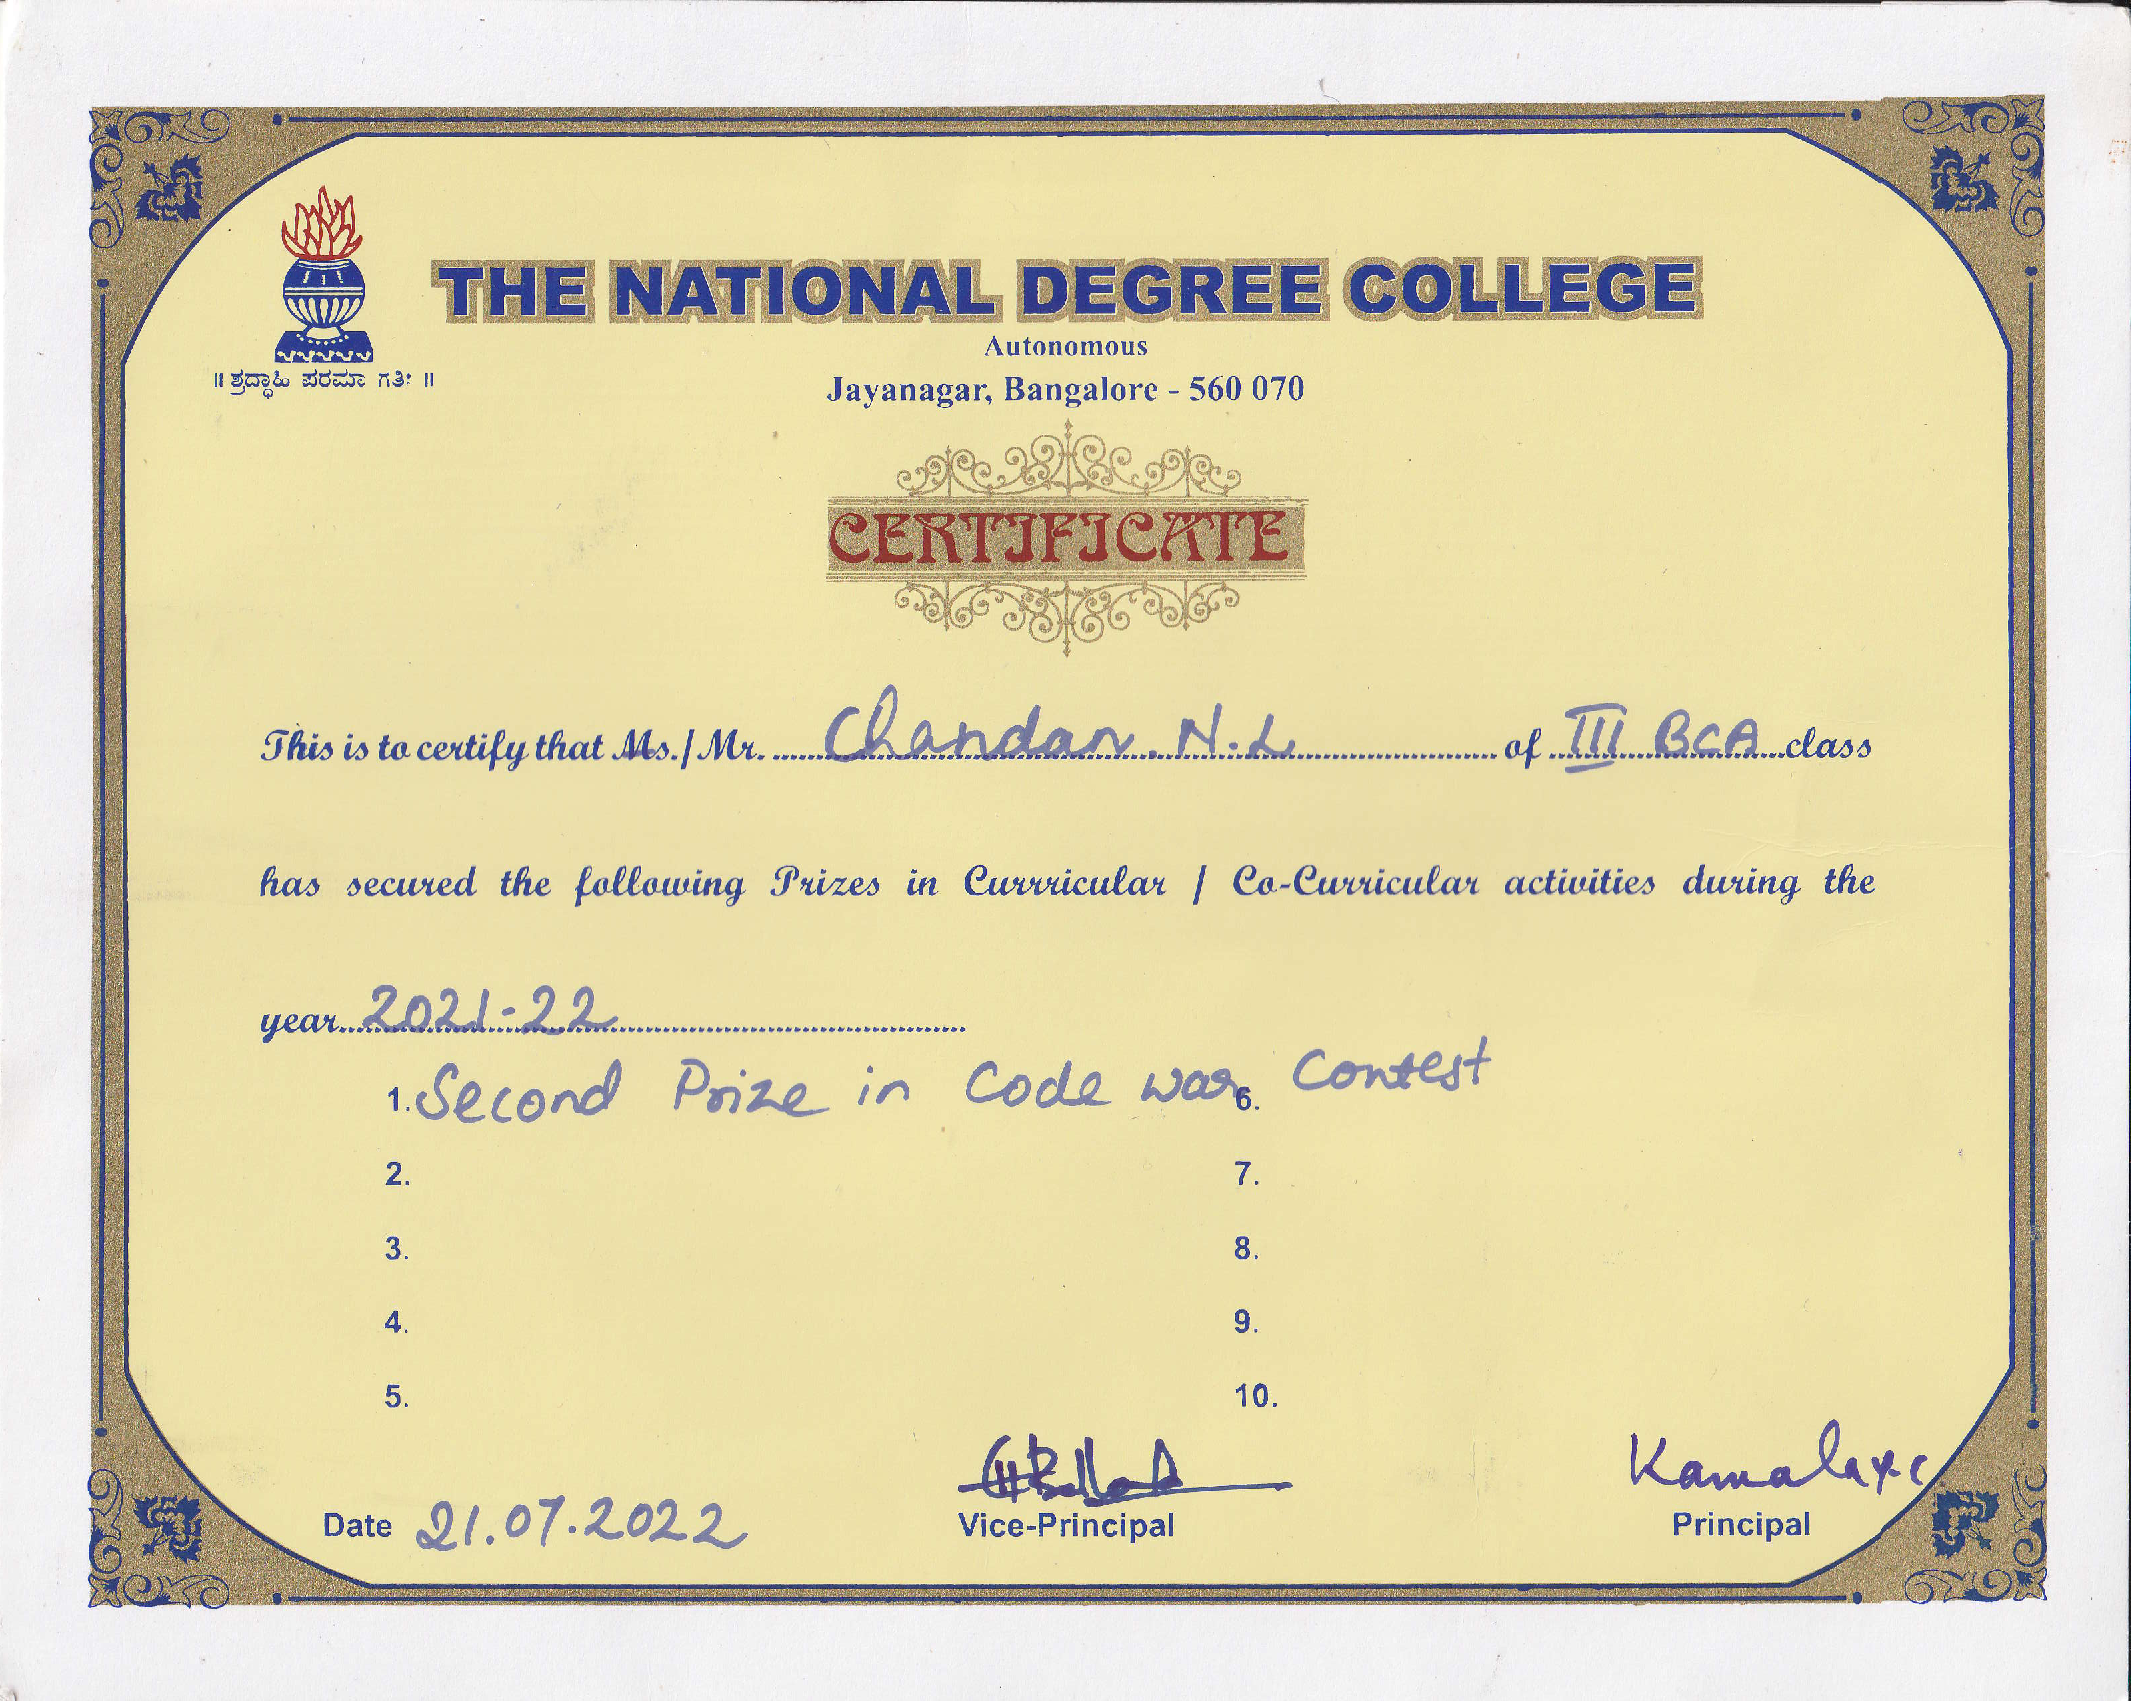 THE NATIONAL DEGREE COLLEGE
Autonomous
॥ ಶ್ರದ್ಧಾಹಿ ಪರಮಾ ಗತಿಃ ॥
Jayanagar, Bangalore - 560 070
CERTIFICATE
This is to certify that Ms./Mr. Chandan. N.L of III BCA class
has secured the following Prizes in Currricular / Co-Curricular activities during the
year 2021-22
1. Second Prize in Code war 6. Contest
2. 7.
3. 8.
4. 9.
5. 10.
Date 21.07.2022 Vice-Principal Principal